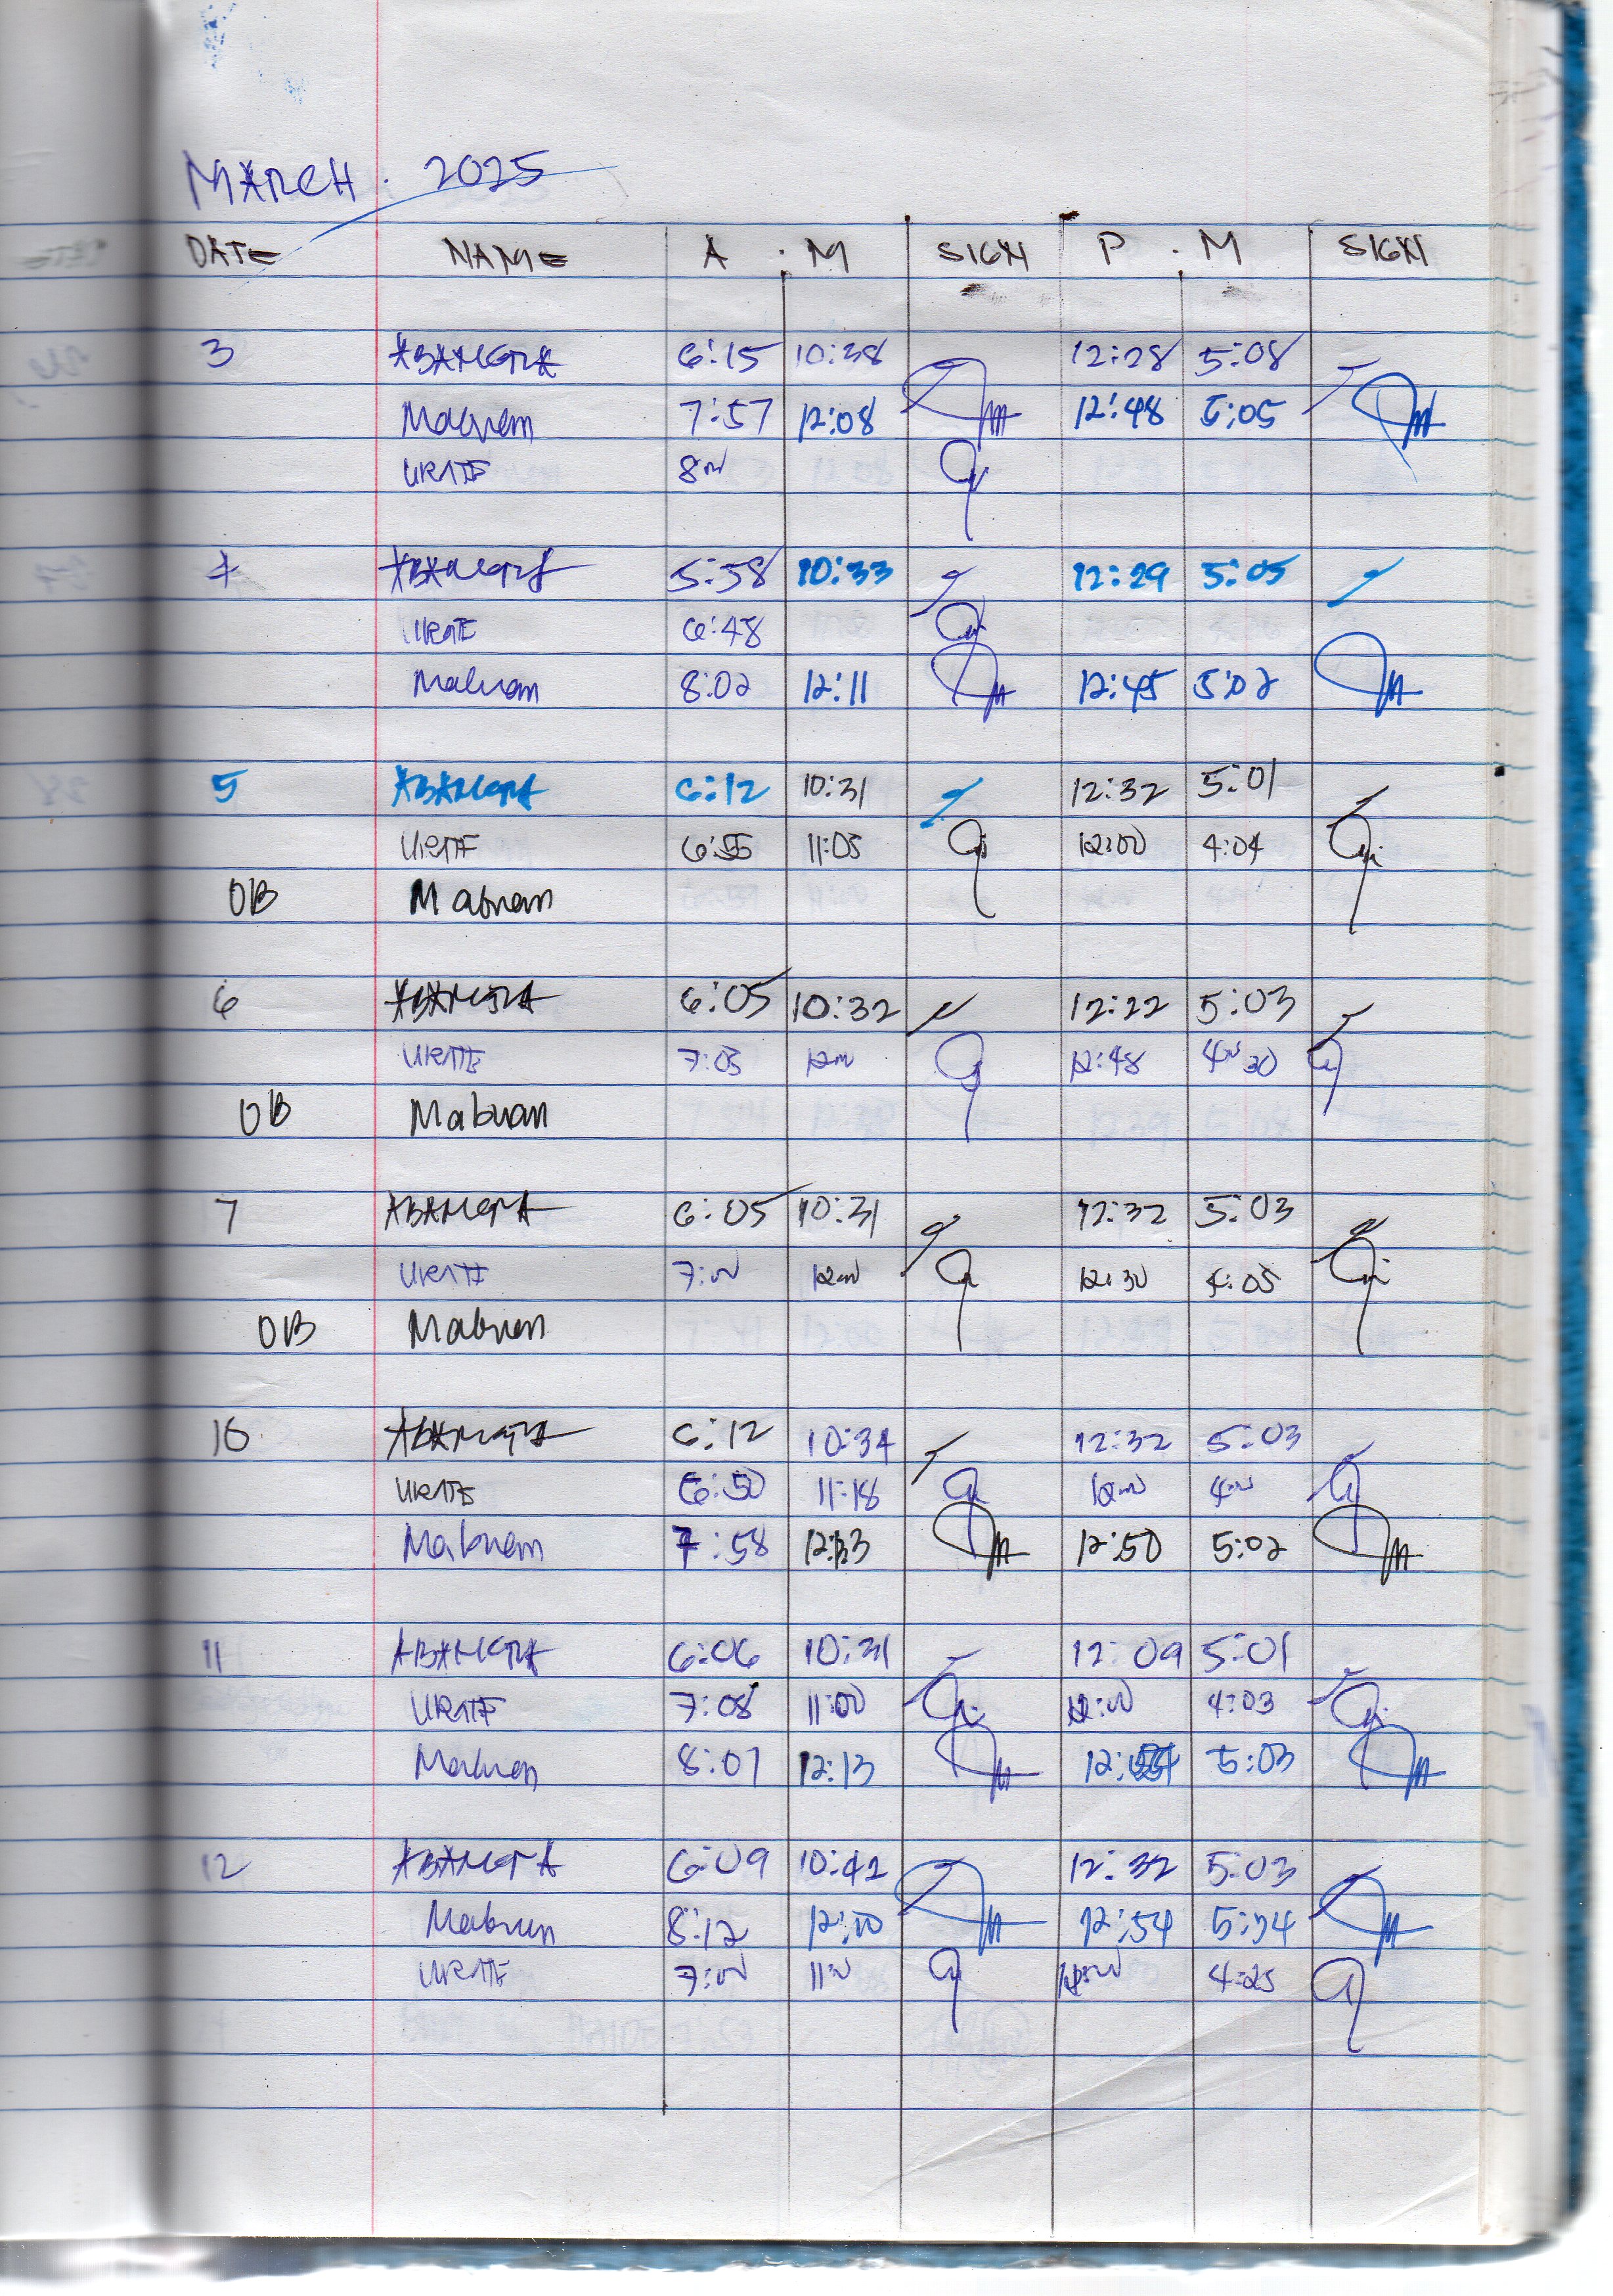 MARCH . 2025
DATE NAME A . M SIGN P . M SIGN
3 ABAMGTA 6:15 10:38 12:28 5:08
Mabuan 7:57 12:08 12:48 5:05
URATE 8
4 ABAMGTA 5:58 10:33 12:29 5:05
URATE 6:48
Mabuan 8:02 12:11 12:45 5:02
5 ABAMGTA 6:12 10:31 12:32 5:01
URATE 6:55 11:05 12:00 4:04
OB Mabuan
6 ABAMGTA 6:05 10:32 12:22 5:03
URATE 7:03 12:48
OB Mabuan
7 ABAMGTA 6:05 10:31 12:32 5:03
URATE 7:00 12:30 4:05
OB Mabuan
10 ABAMGTA 6:12 10:34 12:32 5:03
URATE 6:50 11:18
Mabuan 7:58 12:50 5:02
11 ABAMGTA 6:06 10:31 12:09 5:01
URATE 7:08 11:00 12:00 4:03
Mabuan 8:07 12:13 5:03
12 ABAMGTA 6:09 10:42 12:32 5:03
Mabuan 8:12 12:10 12:54 5:34
URATE 7:00 4:25